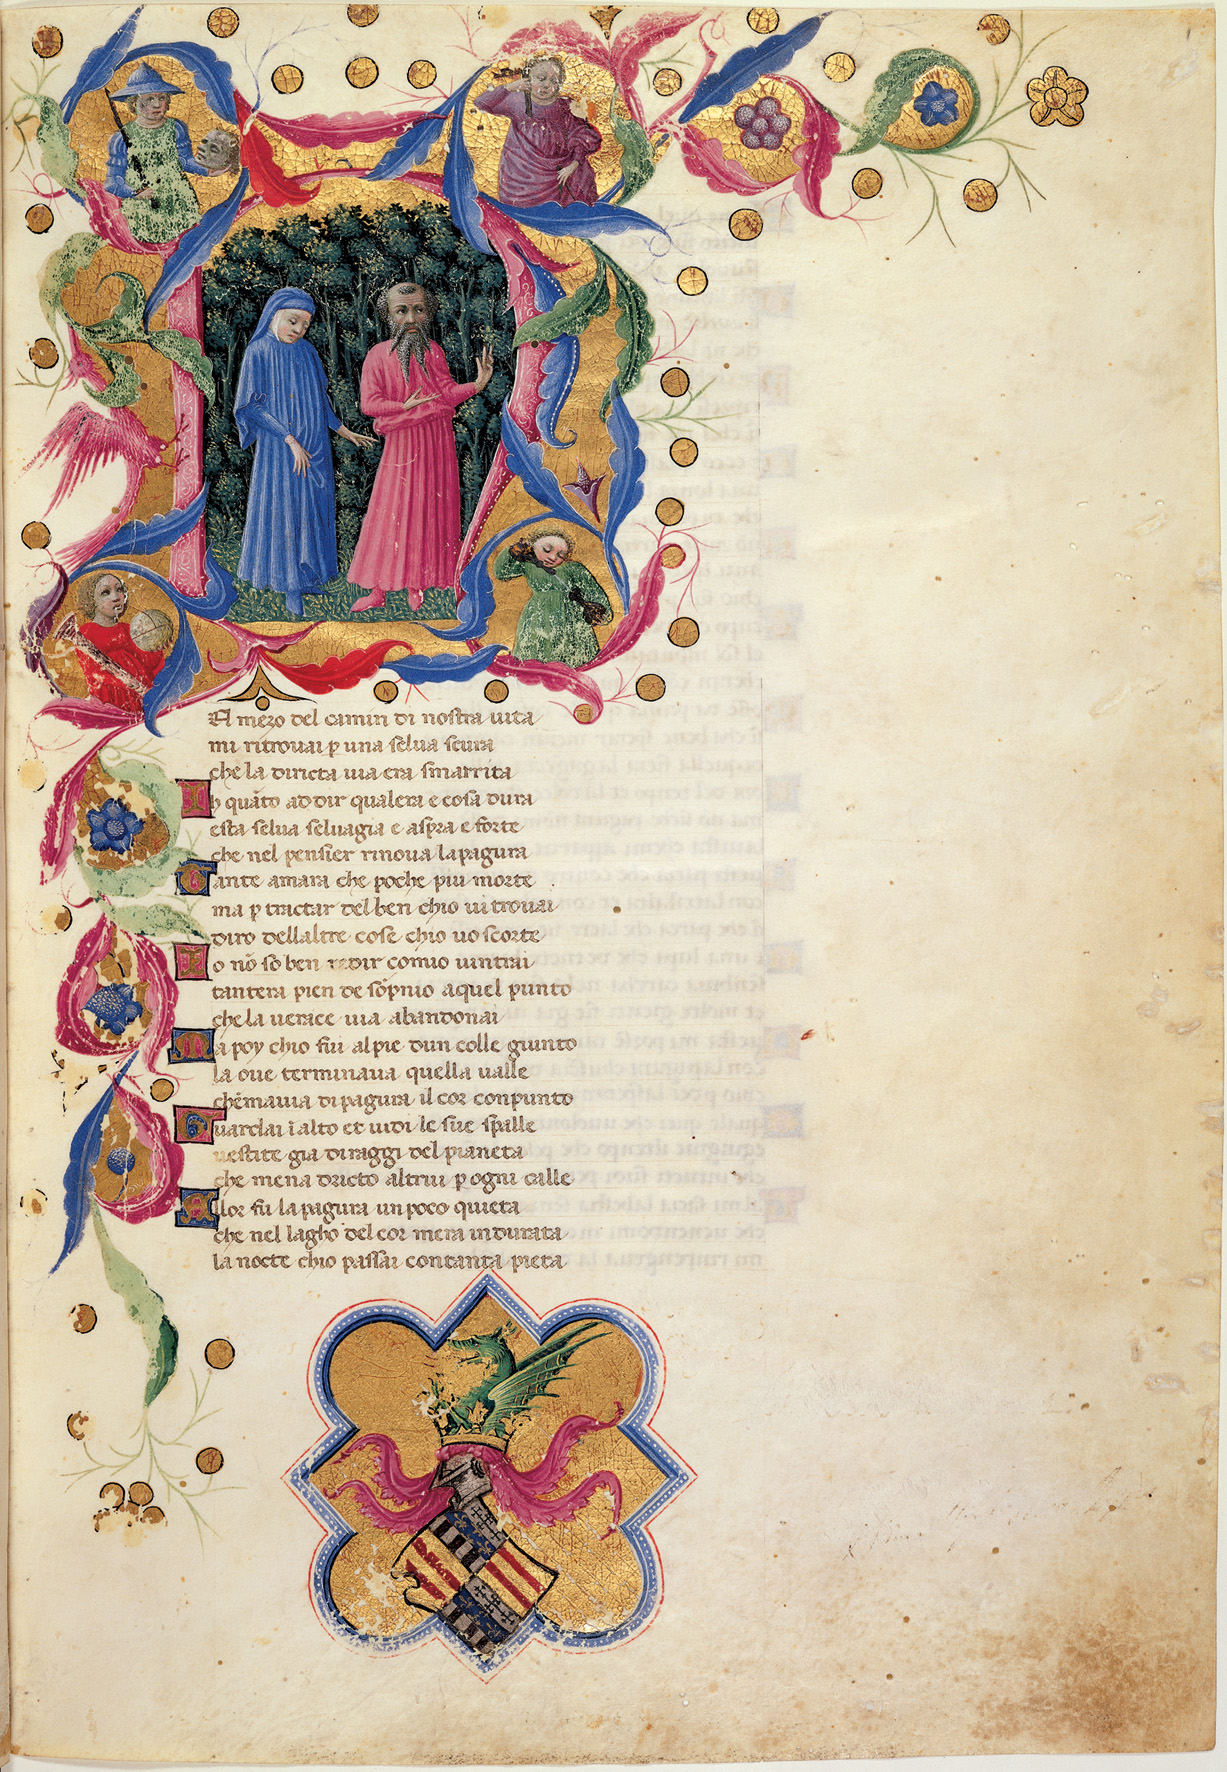 A mezo del camin di nostra uita
mi ritrouai p una selua scura
che la diricta uia era smarrita
Ih quāto ad dir qualera e cosa dura
esta selua seluagia e aspra e forte
che nel pensier rinoua la pagura
Tante amara che poche piu morte
ma p tractar del ben chio ui trouai
diro dellaltre cose chio uo scorte
Io nō so ben redir comio uintrai
tantera pien de sōpnio a quel punto
che la uerace uia abandonai
Ma poy chio fui al pie dun colle giunto
la oue terminaua quella ualle
che mauia di pagura il cor conpunto
Guardai ī alto et uidi le sue spalle
uestite gia di raggi del pianeta
che mena dricto altrui p ogni calle
Allor fu la pagura un poco quieta
che nel lagho del cor mera indurata
la nocte chio passai con tanta pieta